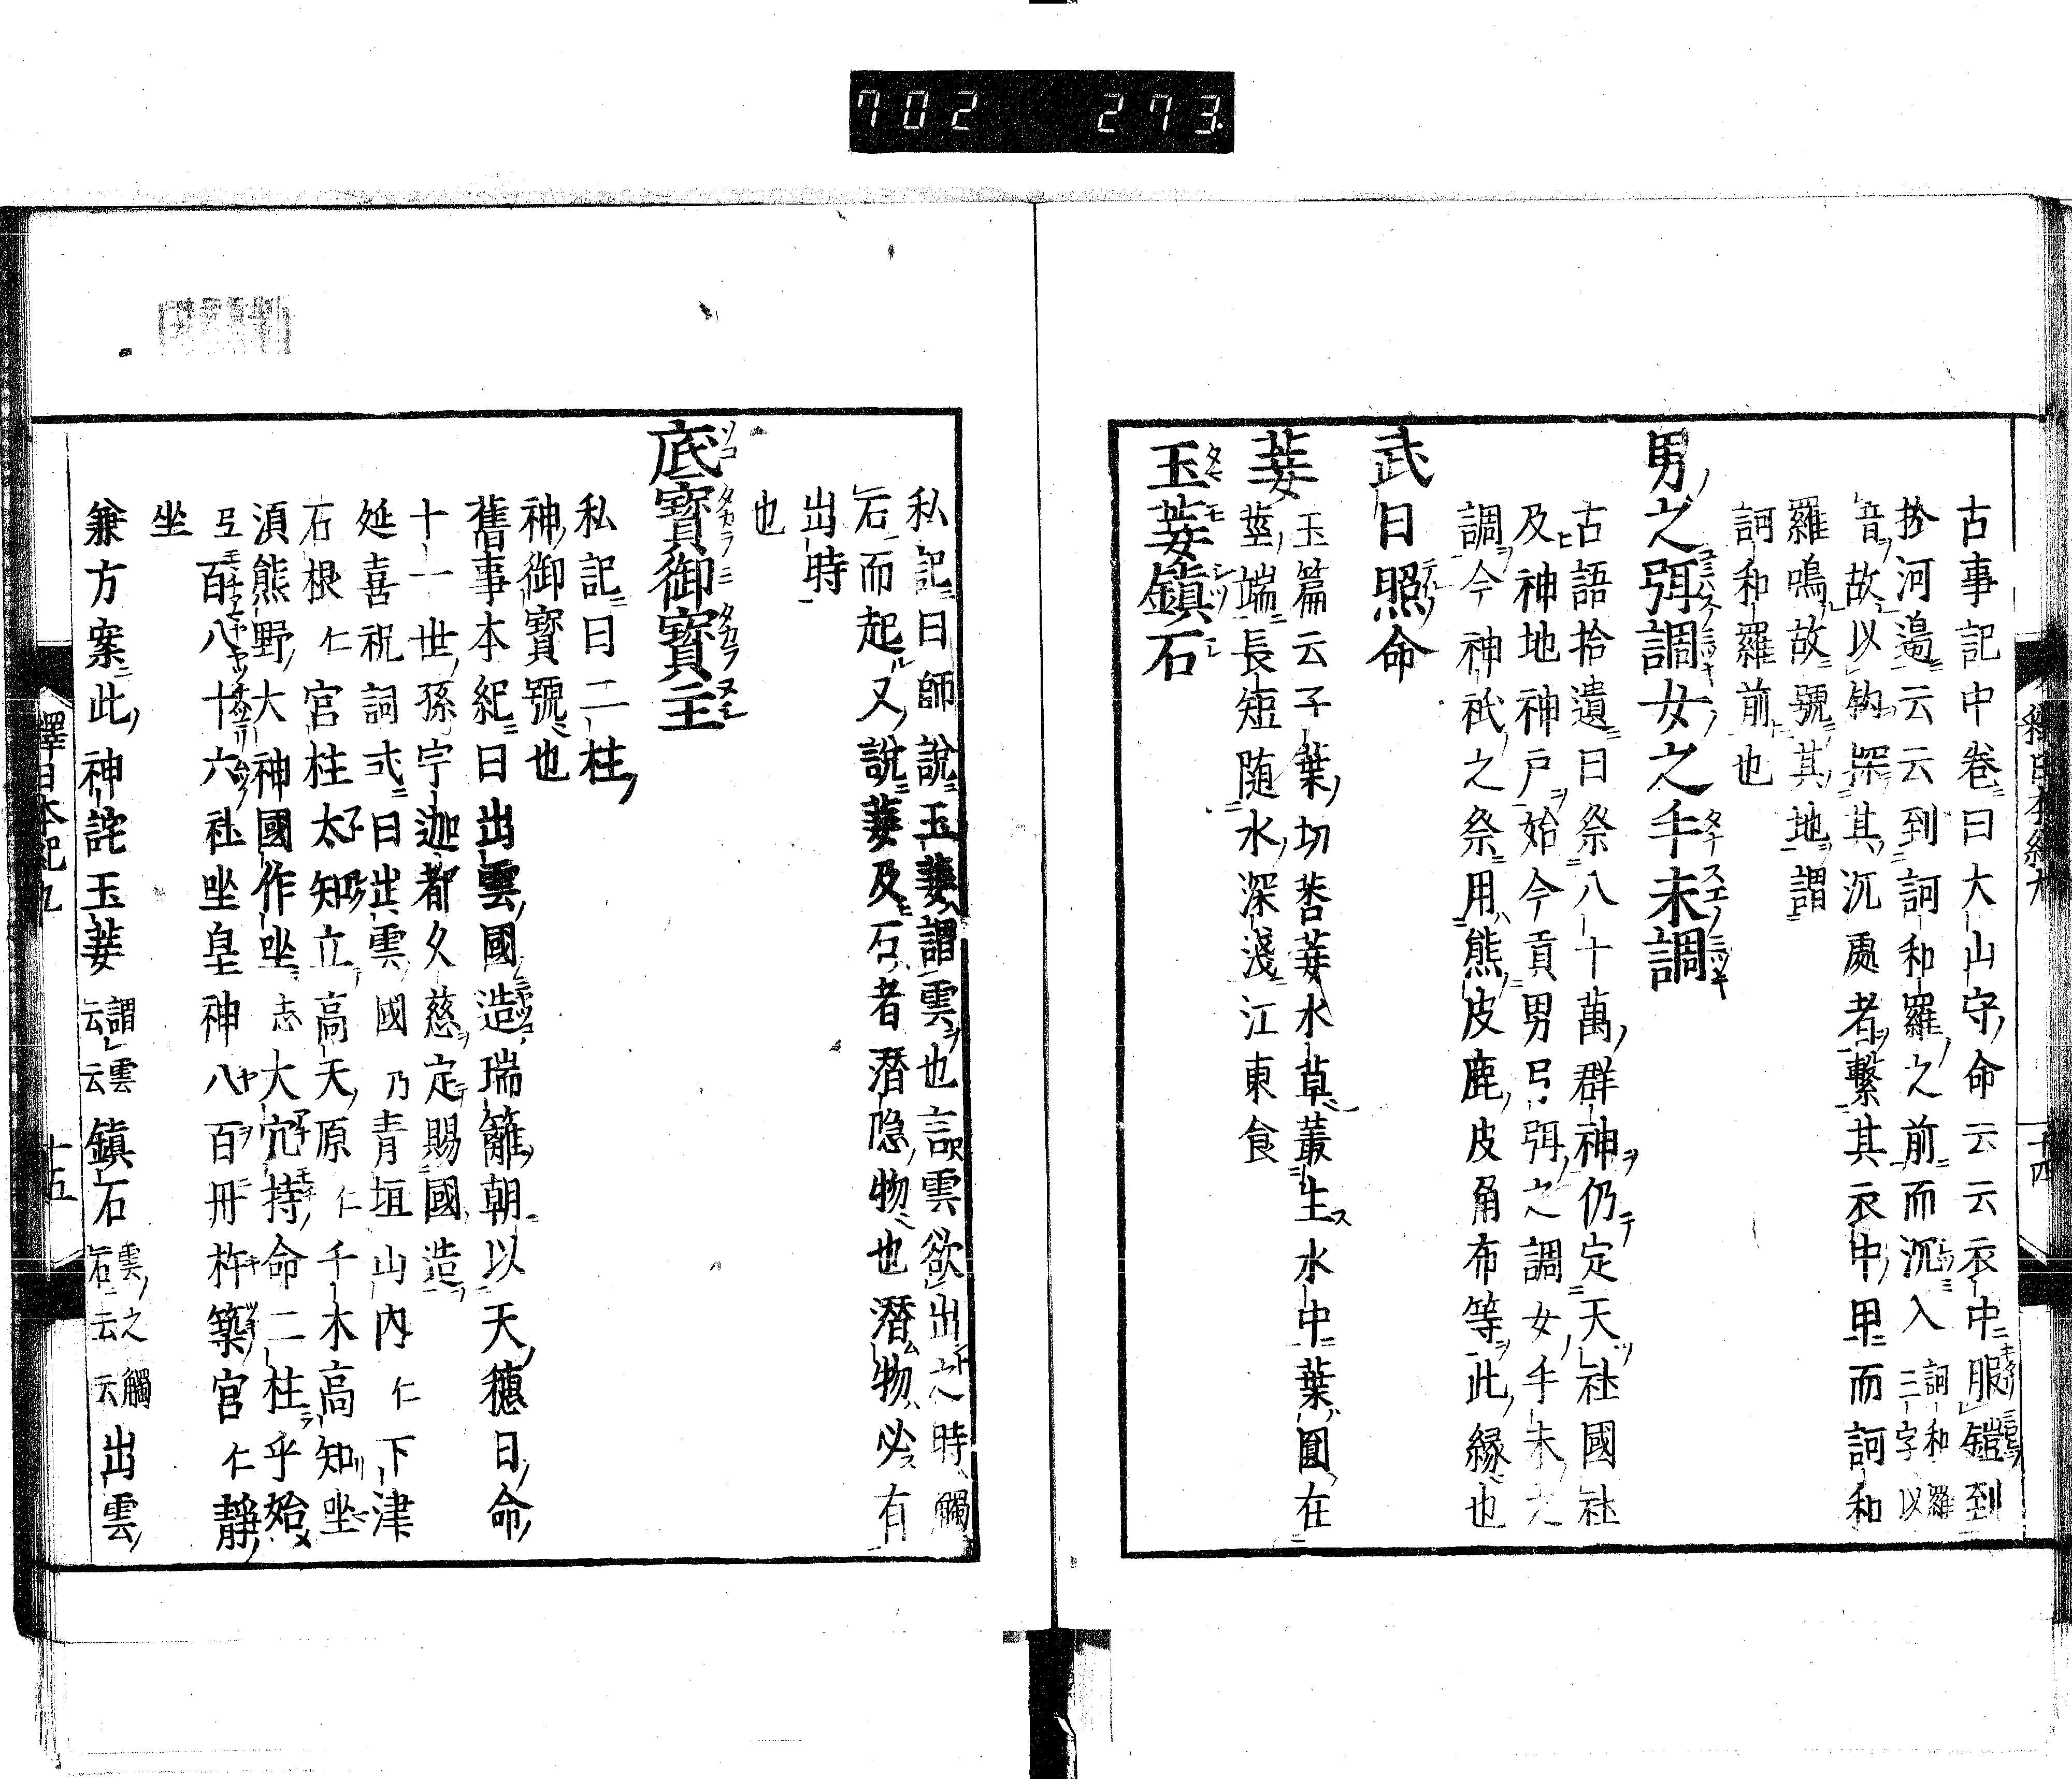 702 273
古事記中卷曰大山守命云云衣中服鎧到
於河邊云云到訶和羅之前而沉入訶和羅三字以
音故以鈎探其沉處者繫其衣中甲而訶和
羅鳴故號其地謂
訶和羅前也
男之弭調女之手末調
古語拾遺曰祭八十萬群神仍定天社國社
及神地神戸始令貢男弓弭之調女手末之
調今神祇之祭用熊皮鹿皮角布等此縁也
武日照命
萋玉篇云子葉切萋水草叢生水中葉圓在
莖端長短随水深淺江東食
玉萋鎮石
私記曰師說玉萋謂雲也言雲欲出之時觸
石而起又說萋及石者潛隠物也潛物必有
出時
也
底寶御寶主
私記曰二柱
神御寶號也
舊事本紀曰出雲國造瑞籬朝以天穗日命
十一世孫宇迦都久慈定賜國造
延喜祝詞式曰出雲國乃青垣山内仁下津
石根仁宮柱太知立高天原仁千木高知坐
須熊野大神國作坐志大穴持命二柱乎始
百八十六社坐皇神八百冊杵築宮仁靜
坐
兼方案此神詫玉萋謂雲云云鎮石雲之觸石云云出雲
釋日本紀九
十四
釋日本紀九
十五